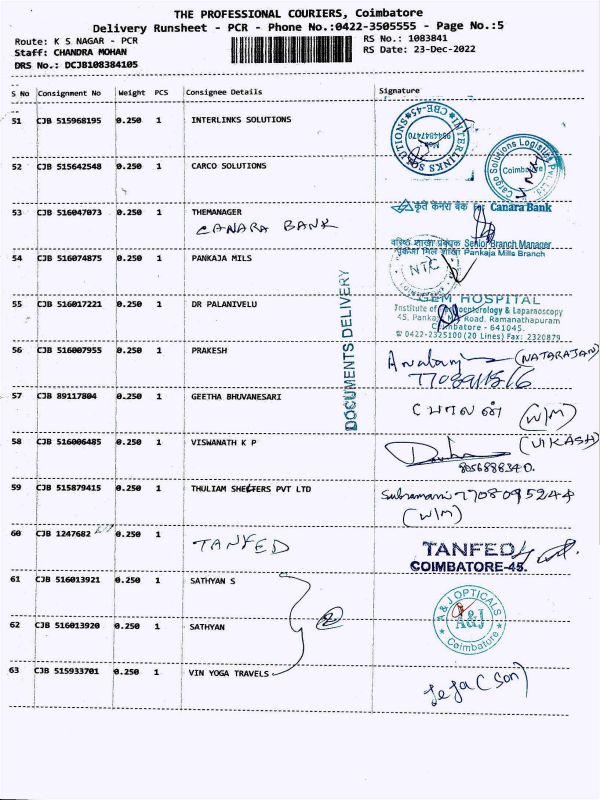 THE PROFESSIONAL COURIERS, Coimbatore
Delivery Runsheet - PCR - Phone No.:0422-3505555 - Page No.:5
Route: K S NAGAR - PCR
RS No.: 1083841
Staff: CHANDRA MOHAN
RS Date: 23-Dec-2022
DRS No.: DCJB108384105
S No Consignment No Weight PCS Consignee Details Signature
51 CJB 515968195 0.250 1 INTERLINKS SOLUTIONS
INTERLINKS SOLUTIONS CBE-45
52 CJB 515642548 0.250 1 CARCO SOLUTIONS
Cargo Solutions Logistics Pvt. Ltd.
Coimbatore
53 CJB 516047073 0.250 1 THEMANAGER
CANARA BANK
कृते केनरा बैंक For Canara Bank
वरिष्ठ शाखा प्रबंधक Senior Branch Manager
54 CJB 516074875 0.250 1 PANKAJA MILS
पंकजा मिल शाखा Pankaja Mills Branch
NTC
DOCUMENTS DELIVERY
55 CJB 516017221 0.250 1 DR PALANIVELU
GEM HOSPITAL
Institute of Gastroenterology & Laparoscopy
45, Pankaja Mill Road. Ramanathapuram
Coimbatore - 641045.
0422-2325100 (20 Lines) Fax: 2320879
56 CJB 516007955 0.250 1 PRAKESH
(NATARAJAN)
57 CJB 89117804 0.250 1 GEETHA BHUVANESARI
(W/M)
58 CJB 516006485 0.250 1 VISWANATH K P
(VIKASH)
8056886340.
59 CJB 515879415 0.250 1 THULIAM SHELTERS PVT LTD
Subramani 7708095244
(W/M)
60 CJB 1247682 0.250 1
TANFED
TANFED
COIMBATORE-45.
61 CJB 516013921 0.250 1 SATHYAN S
A & J OPTICALS
A&J
Coimbatore
62 CJB 516013920 0.250 1 SATHYAN
63 CJB 515933701 0.250 1 VIN YOGA TRAVELS
(Son)